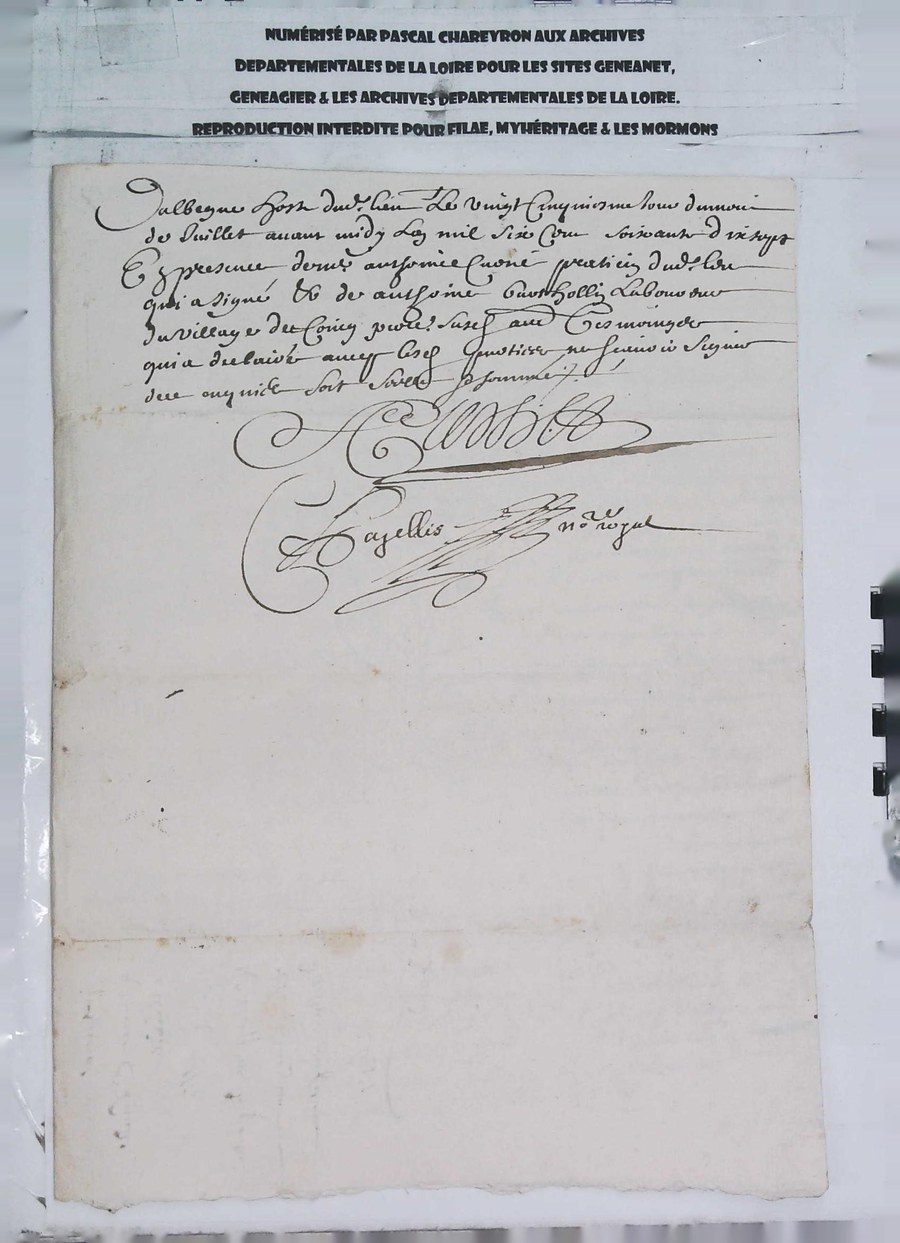 NUMÉRISÉ PAR PASCAL CHAREYRON AUX ARCHIVES
DEPARTEMENTALES DE LA LOIRE POUR LES SITES GENEANET,
GENEAGIER & LES ARCHIVES DEPARTEMENTALES DE LA LOIRE.
REPRODUCTION INTERDITE POUR FILAE, MYHÉRITAGE & LES MORMONS
Dalbegue hoste dud. lieu Le vingt Cinquiesme Jour du mois
de Juillet avant midy Lan mil Six Cens soixante dixsept
En presence de me anthoine praticien dud. lieu
qui a signé & de anthoine barthollin Laboureur
du village de parr. susd. Tesmoingz
qui a declairé avec lesd. ne scavoir signer
de ce enquis soit seelle
Chazellis no.re royal